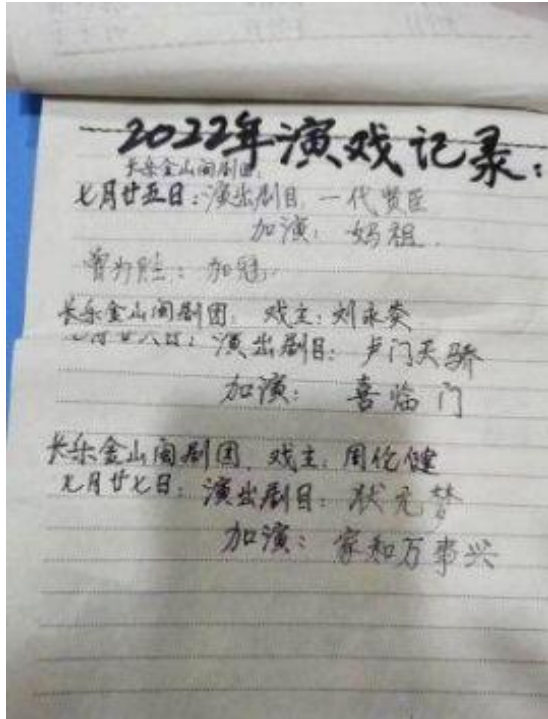 2022年演戏记录：
长乐金山闽剧团，
七月廿五日：演出剧目：一代贤臣
加演：妈祖．
加冠．
长乐金山闽剧团，戏主：刘永英
七月廿六日：演出剧目：卢门天骄
加演：喜临门
长乐金山闽剧团，戏主：周伦健
七月廿七日：演出剧目：状元梦
加演：家和万事兴